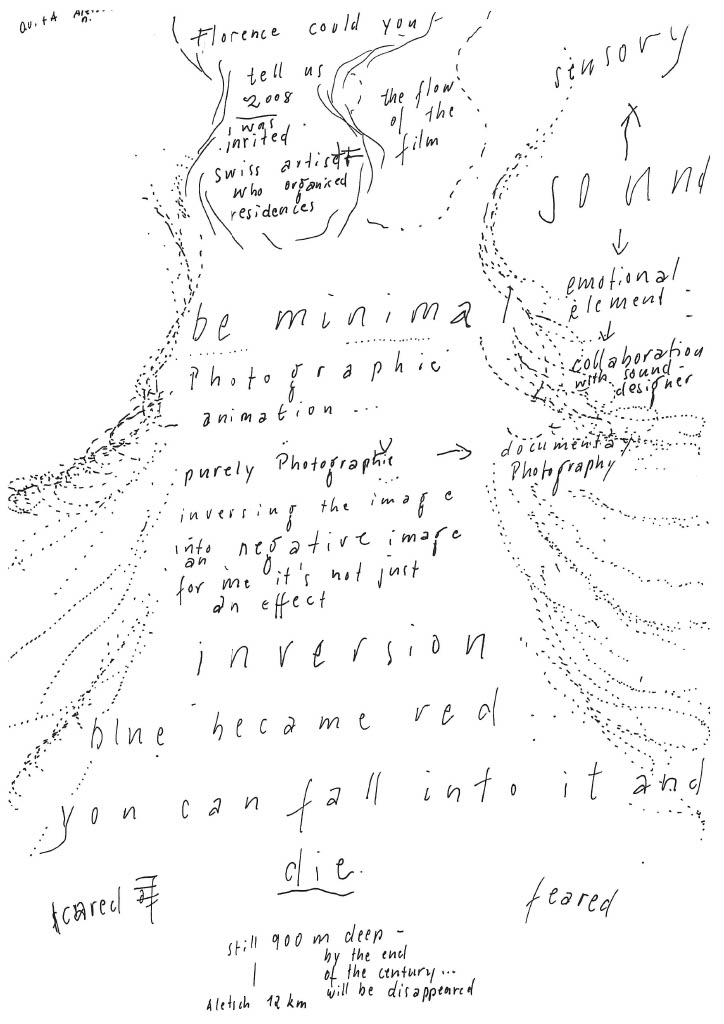 Florence could you
tell us
2008
i was
invited
swiss artist
who organised
residences
the flow
of the
film
sensory
sound
emotional
element
collaboration
with sound
designer
be minimal
Photographic
animation ...
purely Photographic
documentary
Photography
inversing the image
into
an negative image
for me it's not just
an effect
inversion
blue became red ..
you can fall into it and
die.
scared
feared
still 900 m deep -
by the end
of the century...
will be disappeared
Aletsch 12 km